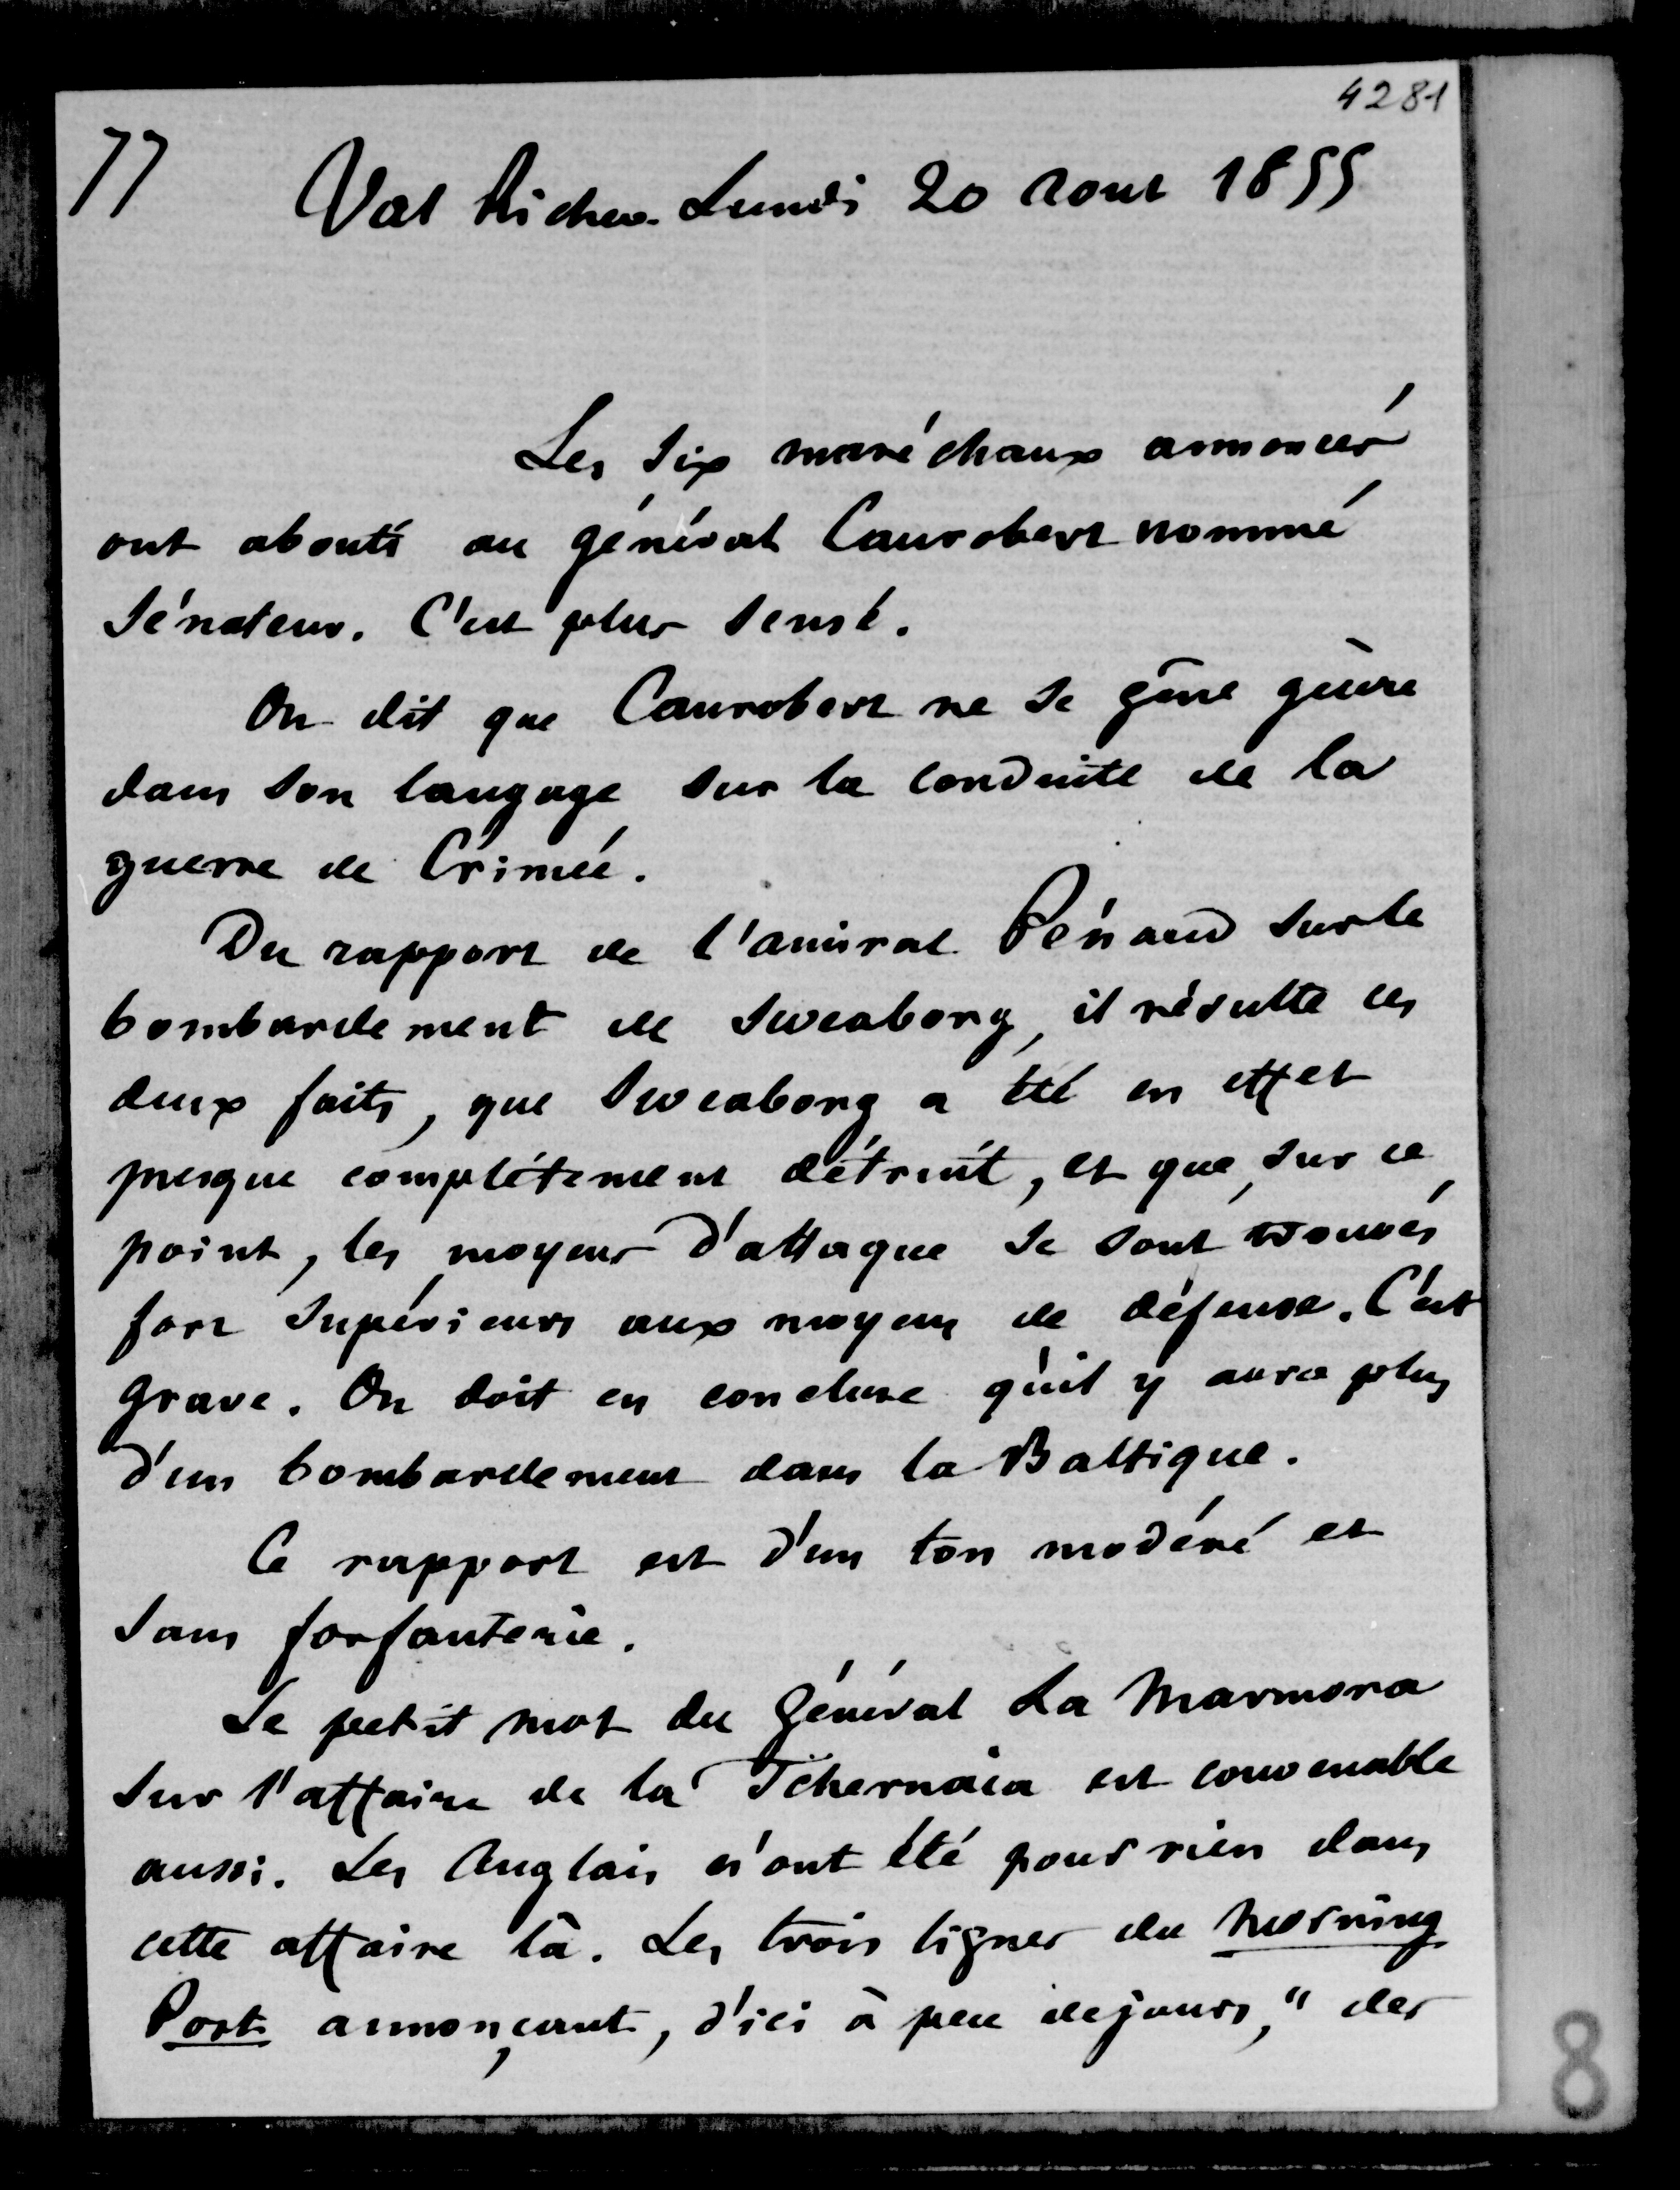 4281
77 Val Richer. Lundi 20 aout 1855
Les six maréchaux annoncés
ont abouti au général Canrobert nommé
Sénateur. C'est plus sensé.
On dit que Canrobert ne se gêne guère
dans son langage sur la conduite de la
guerre de Crimée.
Du rapport de l'amiral Pénaud sur le
bombardement de Sweaborg, il résulte ces
deux faits, que Sweaborg a été en effet
presque complétement détruit, et que, sur ce
point, les moyens d'attaque se sont trouvés
fort supérieurs aux moyens de défense. C'est
grave. On doit en conclure qu'il y aura plus
d'un bombardement dans la Baltique.
Ce rapport est d'un ton modéré et
sans forfanterie.
Le petit mot du Général La Marmora
sur l'affaire de la Tchernaïa est convenable
aussi. Les Anglais n'ont été pour rien dans
cette affaire là. Les trois lignes du Morning
Post annonçant, d'ici à peu de jours, "des
8